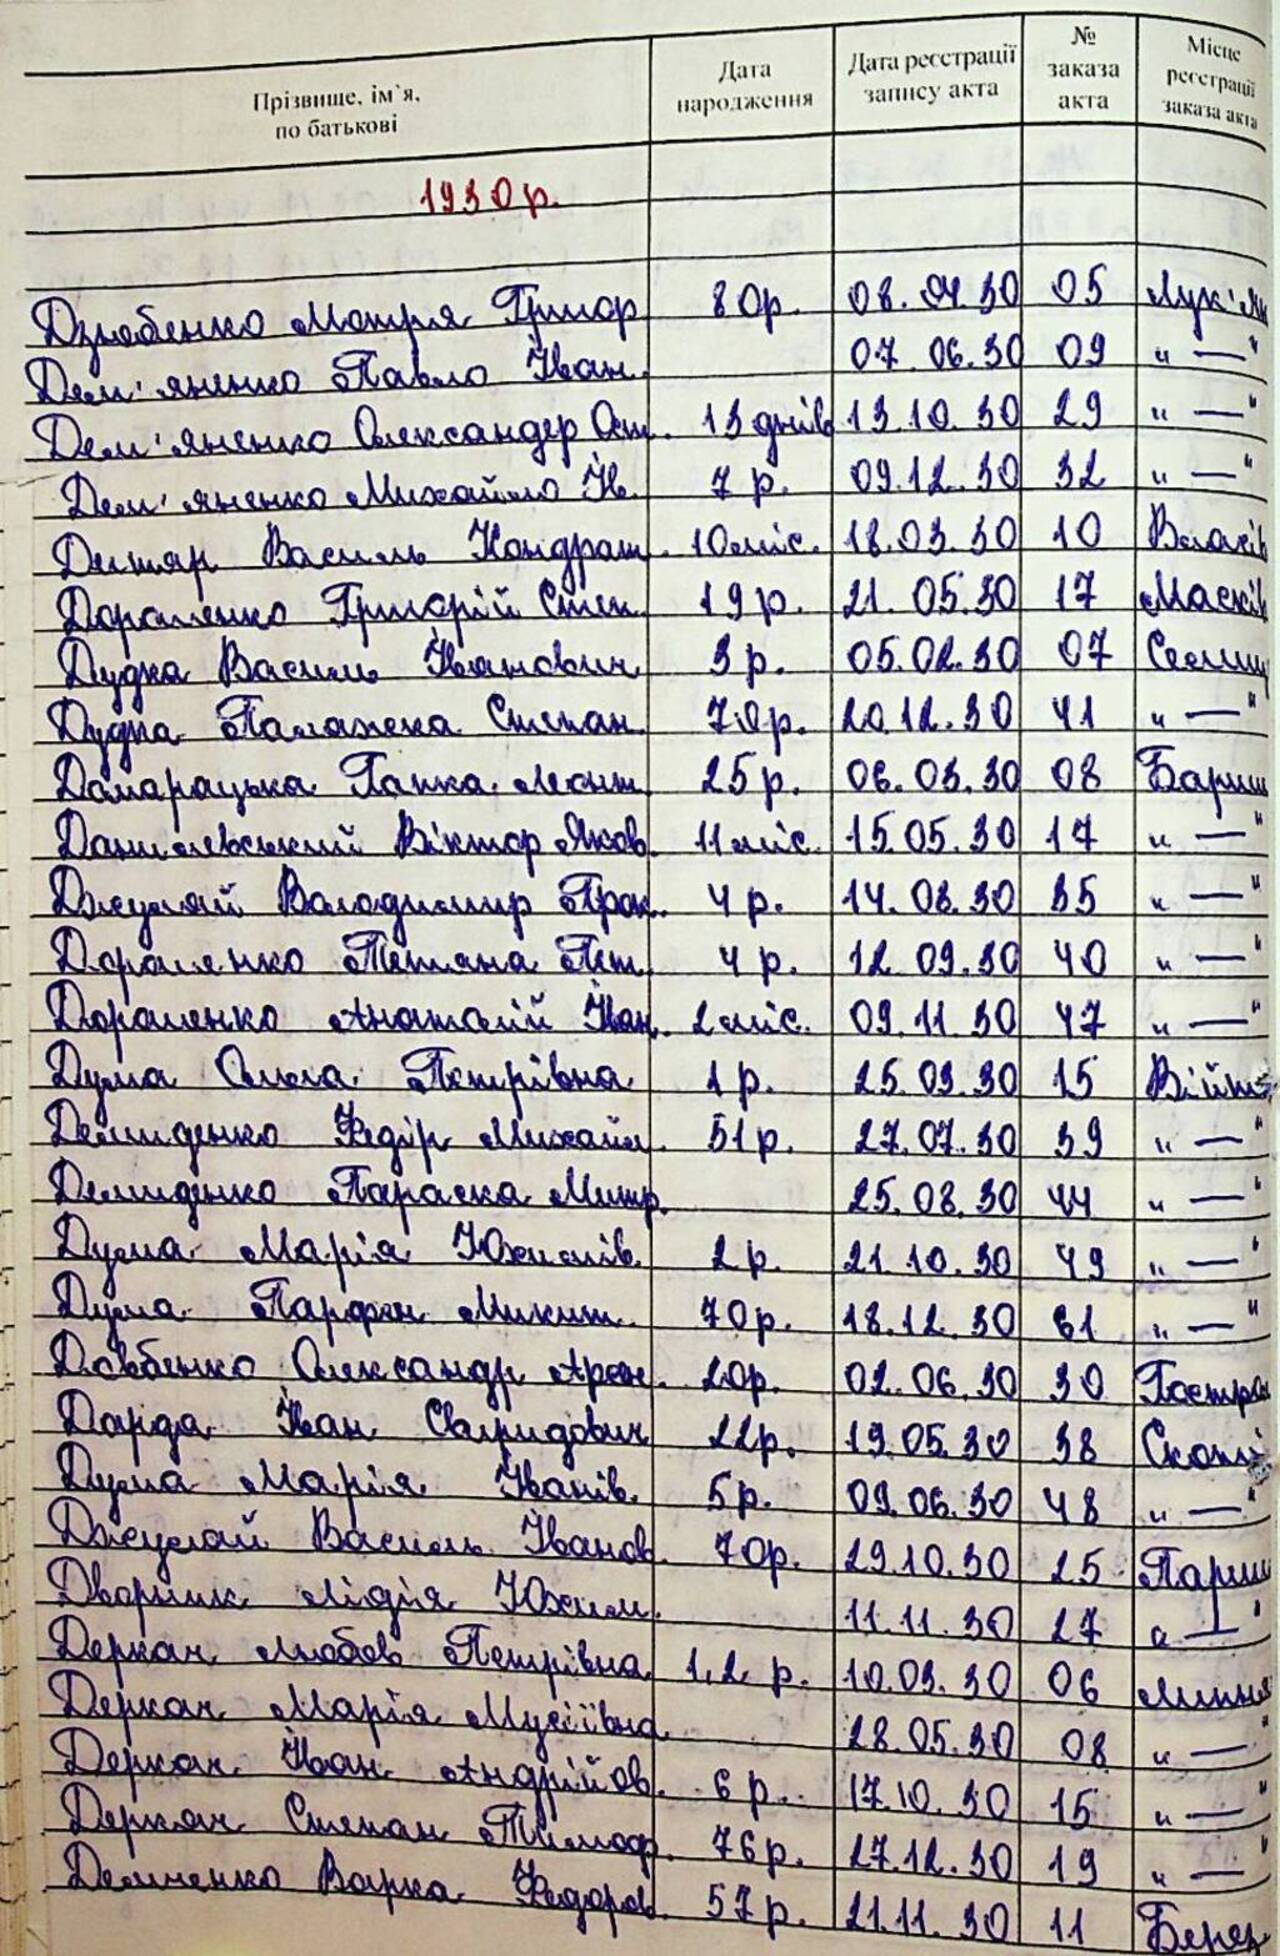 Прізвище, ім`я, по батькові Дата народження Дата реєстрації запису акта № заказа акта Місце реєстрації заказа акта
1930 р.
Дзюбенко Мотря Григор. 80р. 08.04.30 05 Лук'ян
Дем'яненко Павло Іван. 07.06.30 09 " — "
Дем'яненко Олександер Ост. 13 днів 13.10.30 29 " — "
Дем'яненко Михайло Ів. 7 р. 09.12.30 32 " — "
Дегтяр Василь Кондрат. 10 міс. 18.03.30 10 Власів
Дорошенко Григорій Степ. 19 р. 21.05.30 17 Масків
Дудка Василь Іванович 3 р. 05.02.30 07 Селищ
Дудка Палажка Степан. 70р. 20.12.30 41 " — "
Домарацька Ганка Леонт. 25 р. 06.03.30 08 Бариш
Данилевський Віктор Яков. 11 міс. 15.05.30 17 " — "
Джулай Володимир Прок. 4 р. 14.08.30 35 " — "
Дорошенко Тетяна Пет. 4 р. 12.09.30 40 " — "
Дорошенко Анатолій Іван. 2 міс. 09.11.30 47 " — "
Дума Ольга Петрівна 1 р. 25.03.30 15 Війт
Демиденко Федір Михайл. 51 р. 27.07.30 39 " — "
Демиденко Параска Митр. 25.08.30 44 " — "
Дума Марія Юхимів. 2 р. 21.10.30 49 " — "
Дума Парфен Микит. 70 р. 18.12.30 61 " — "
Довбенко Олександр Арсен. 20р. 02.06.30 30 Гостро
Дарда Іван Свиридович 22р. 19.05.30 38 Скопі
Дума Марія Іванів. 5 р. 09.06.30 48 " — "
Джулай Василь Іванов. 70р. 29.10.30 25 Париш
Дворник Лідія Юхим. 11.11.30 27 " — "
Деркач Любов Петрівна 1,2 р. 10.03.30 06 Липня
Деркач Марія Мусіївна 28.05.30 08 " — "
Деркач Іван Андрійов. 6 р. 17.10.30 15 " — "
Деркач Степан Тимоф. 76 р. 27.12.30 19 " — "
Демченко Варка Федоров. 57 р. 21.11.30 11 Берез